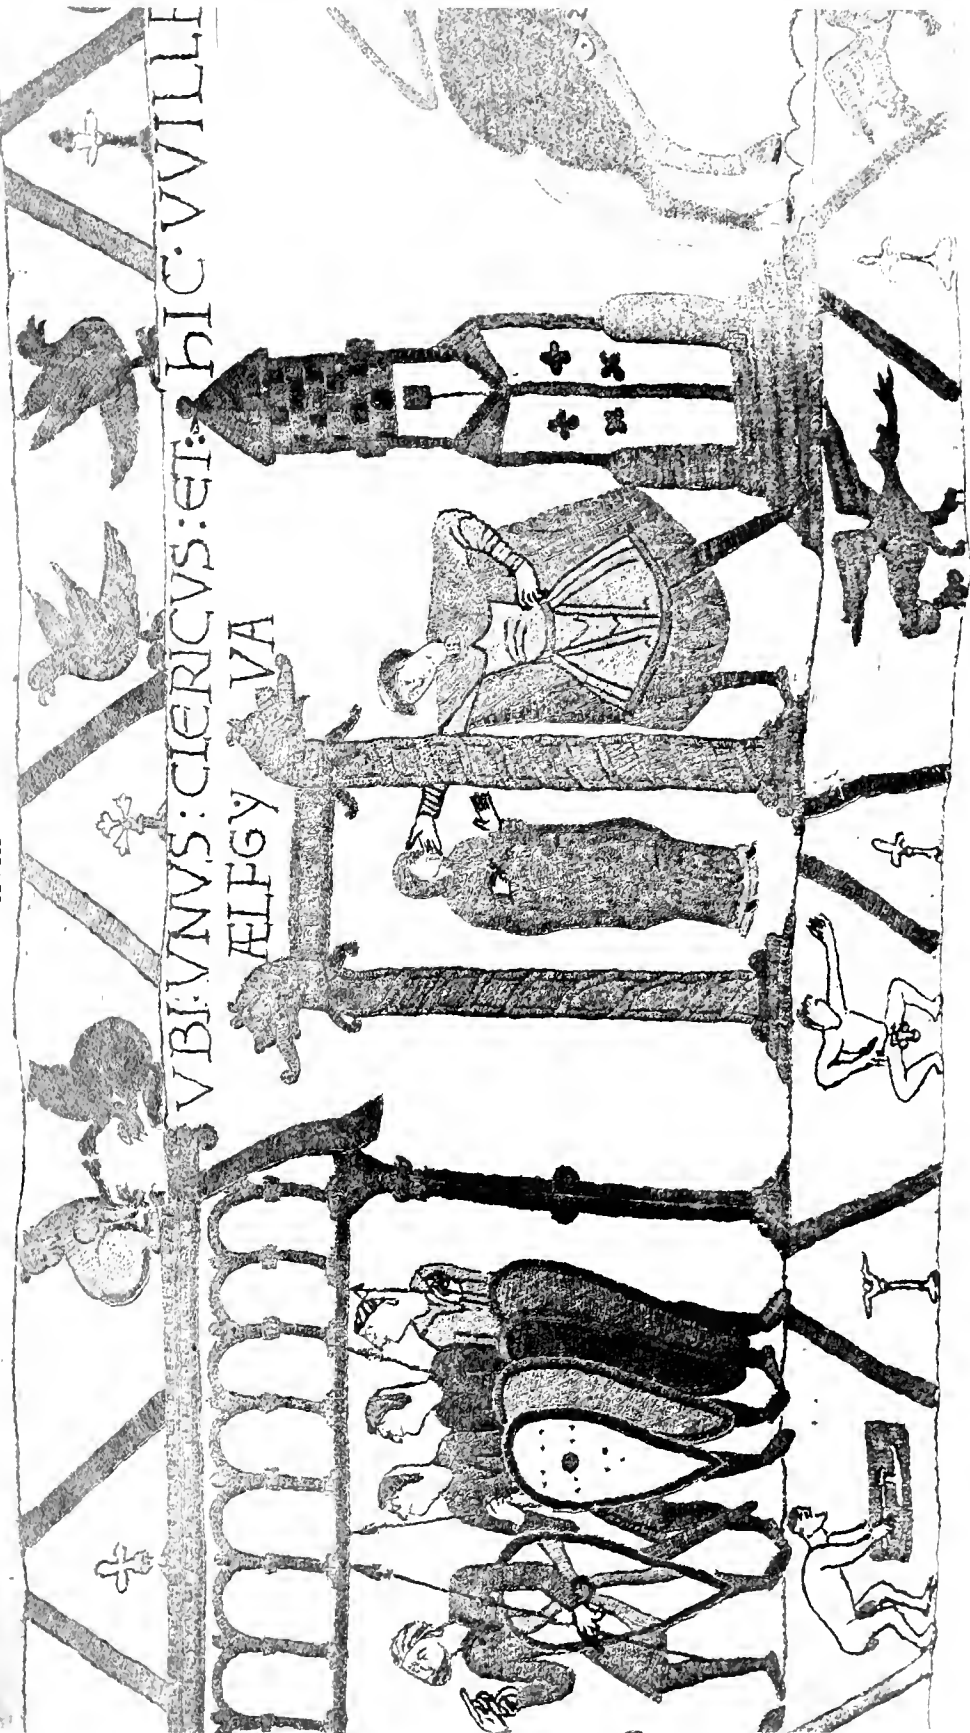 VBI:VNVS:CLERICVS:ET:- hIC:VVILLE
ÆLFGY VA